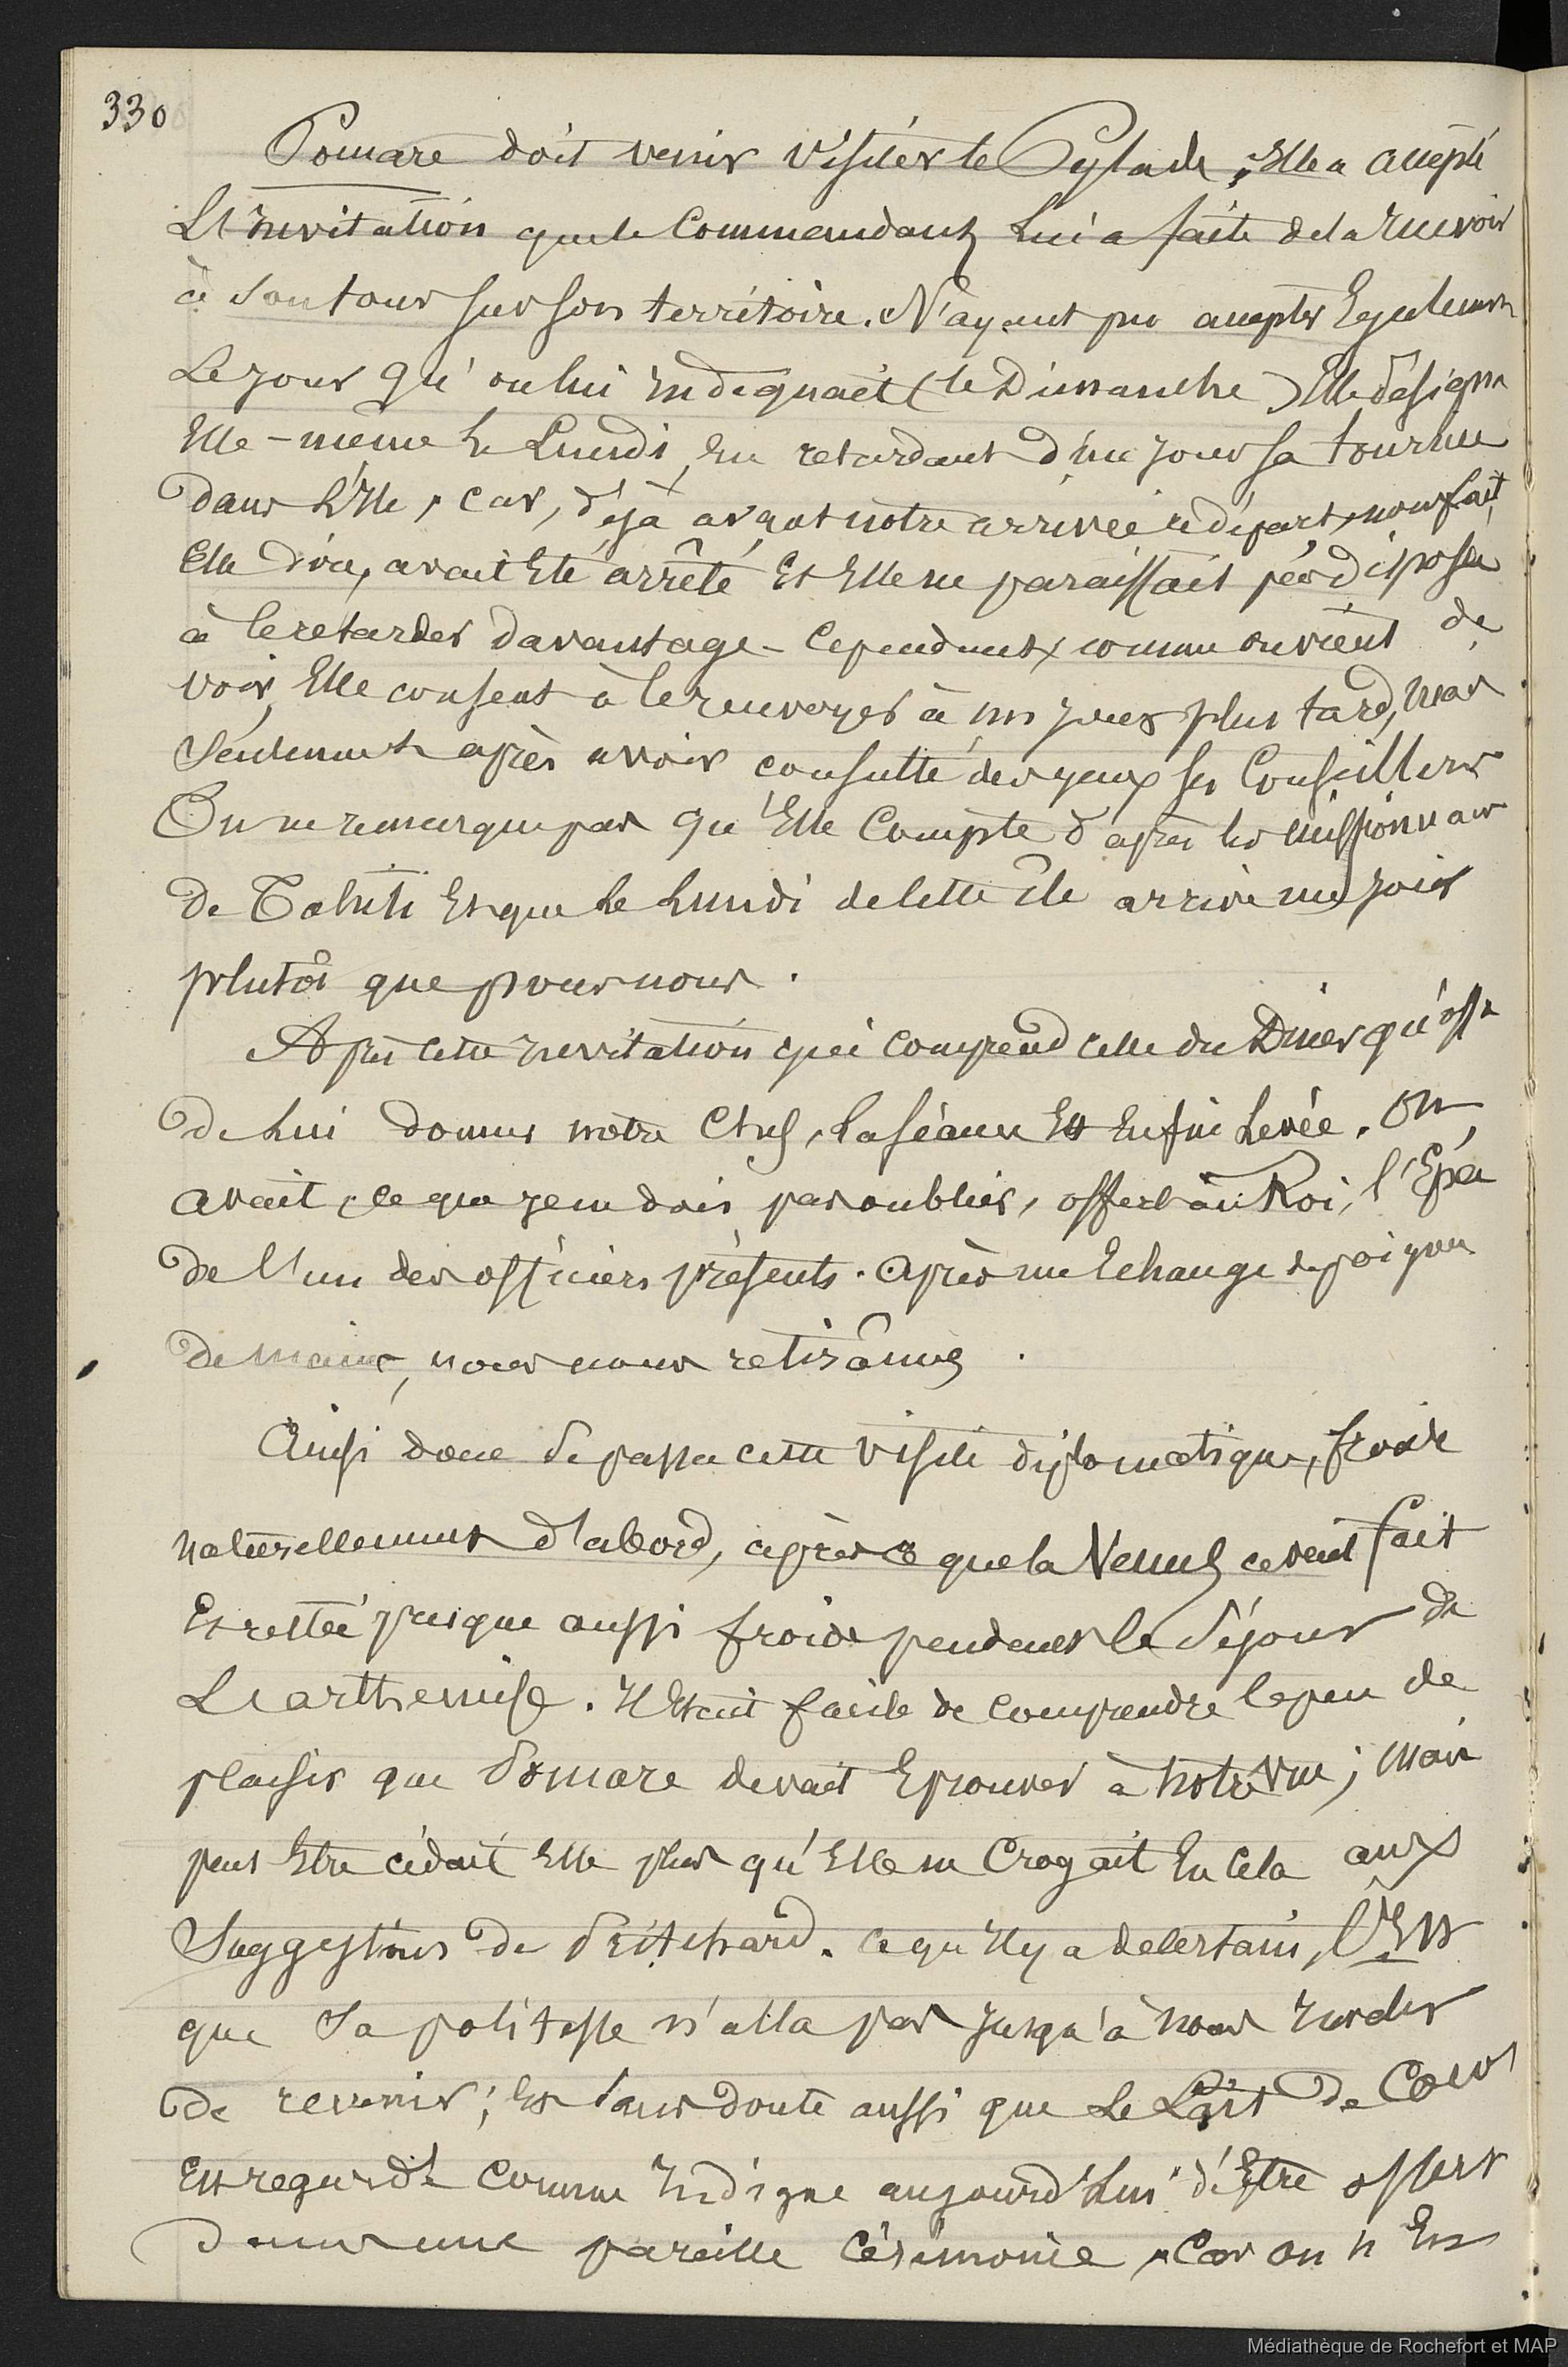 330
Pomare doit venir visiter le Pylade ; Elle a accepté
L'Invitation que le Commandant Lui a faite de la recevoir
à Son tour sur son territoire. N'ayant pu accepter Egalement
Le jour qu'on lui Indiquait (le Dimanche) Elle désigna
Elle-même le Lundi, En retardant d'un jour sa tournée
dans L'Ile, car, déjà avant notre arrivée ce départ, nous fait
Elle dire, avait Eté arrêté Et Elle ne paraissait pas disposée
à le retarder davantage - Cependant, comme on vient de
voir, Elle consent à le renvoyer à un jour plus tard, mais
Seulement après avoir consulté des yeux ses Conseillers
On ne remarqua pas qu'Elle Compte d'après les missionnaires
de Tahiti Et que le Lundi de Cette île arrive un jour
plutôt que pour nous.
Après cette Invitation qui Comprend celle du Diner qu'offre
de Lui donner notre Chef, La séance Est Enfin Levée. On
avait, ce que je ne dois pas oublier, offert au Roi, l'Epée
de L'un des officiers présents. Après un Echange de poignées
de mains, nous nous retirâmes.
Ainsi donc Se passa cette visite diplomatique, froide
naturellement d'abord, après ce que la Venus avait fait
Et restée presque aussi froide pendant le Séjour de
L'arthemise. Il Etait facile de Comprendre le peu de
plaisir que Pomare devait Eprouver à notre vue ; mais
peut Etre cédait Elle plus qu'Elle ne Croyait En Cela aux
Suggestions de Pritchard. Ce qu'Il y a de Certain, C'Est
que Sa politesse n'alla pas Jusqu'à nous
de revenir ; Et Sans doute aussi que Le Lait de Coco
Est regardé Comme Indigne aujourd'hui d'Etre offert
dans une pareille Cérémonie, Car on n'En
Médiathèque de Rochefort et MAP